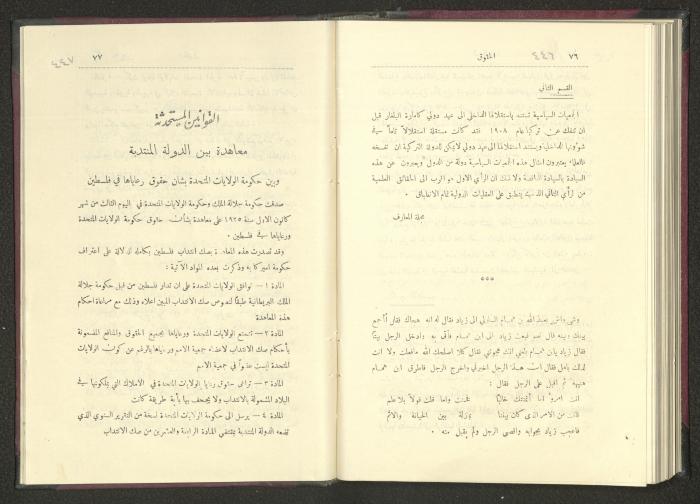 ٧٦
٤٤٦
الحقوق
القسم الثاني
الجمعيات السياسية تستند باستقلالها الداخلي الى عهد دولي كامارة البلغار قبل
ان تنفك عن تركيا عام ١٩٠٨ فقد كانت مستقلة استقلالاً تاماً في
شؤونها الداخلية ويستند استقلالها الى عهد دولي لا يمكن للدولة التركية ان تفسخه
فالعلماء يعتبرون امثال هذه الجمعيات السياسية دولة من الدول ويعبرون عن هذه
السيادة بالسيادة الناقصة ولا شك ان الرأي الاول هو اقرب الى الحقائق العلمية
من الرأي الثاني الذي ينطبق على العمليات الدولية تمام الانطباق .
مجلة المعارف
***
وشى واش بعبد الله بن همام السلولي الى زياد فقال له انه هجاك فقال أأجمع
بينك وبينه قال نعم فبعث زياد الى ابن همام فأتى به وادخل الرجل بيتاً
فقال زياد يا ابن همام بلغني انك هجوتني فقال كلا اصلحك الله ما فعلت ولا انت
لذلك باهل فقال ان هذا الرجل اخبرني واخرج الرجل فاطرق ابن همام
هنيهة ثم اقبل على الرجل فقال :
انت امرؤ اما أئتمنتك خالياً فخنت واما قلت قولاً بلا علم
فانت من الامر الذي كان بيننا بمنزلة بين الخيانة والاثم
فاعجب زياد بجوابه واقصى الرجل ولم يقبل منه .
٧٧
٤٤٧
القوانين المستحدثة
معاهدة بين الدولة المنتدبة
وبين حكومة الولايات المتحدة بشان حقوق رعاياها في فلسطين
صدقت حكومة جلالة الملك وحكومة الولايات المتحدة في اليوم الثالث من شهر
كانون الاول سنة ١٩٢٥ على معاهدة بشأن حقوق حكومة الولايات المتحدة
ورعاياها في فلسطين .
وقد تصدرت هذه المعاهدة بصك انتداب فلسطين بكامله للدلالة على اعتراف
حكومة اميركا به وذكرت بعده المواد الآتية :
المادة ١ — توافق الولايات المتحدة على ان تدار فلسطين من قبل حكومة جلالة
الملك البريطانية طبقاً لنصوص صك الانتداب المبين اعلاه وذلك مع مراعاة احكام
هذه المعاهدة
المادة ٢ — تتمتع الولايات المتحدة ورعاياها بجميع الحقوق والمنافع المضمونة
بأحكام صك الانتداب لاعضاء جمعية الامم ورعاياها بالرغم عن كون الولايات
المتحدة ليست عضواً في جمعية الامم
المادة ٣ — تراعى حقوق رعايا الولايات المتحدة في الاملاك التي يملكونها في
البلاد المشمولة بالانتداب ولا يجحف بها بأية طريقة كانت
المادة ٤ — يرسل الى حكومة الولايات المتحدة نسخة من التقرير السنوي الذي
تقدمه الدولة المنتدبة بمقتضى المادة الرابعة والعشرين من صك الانتداب